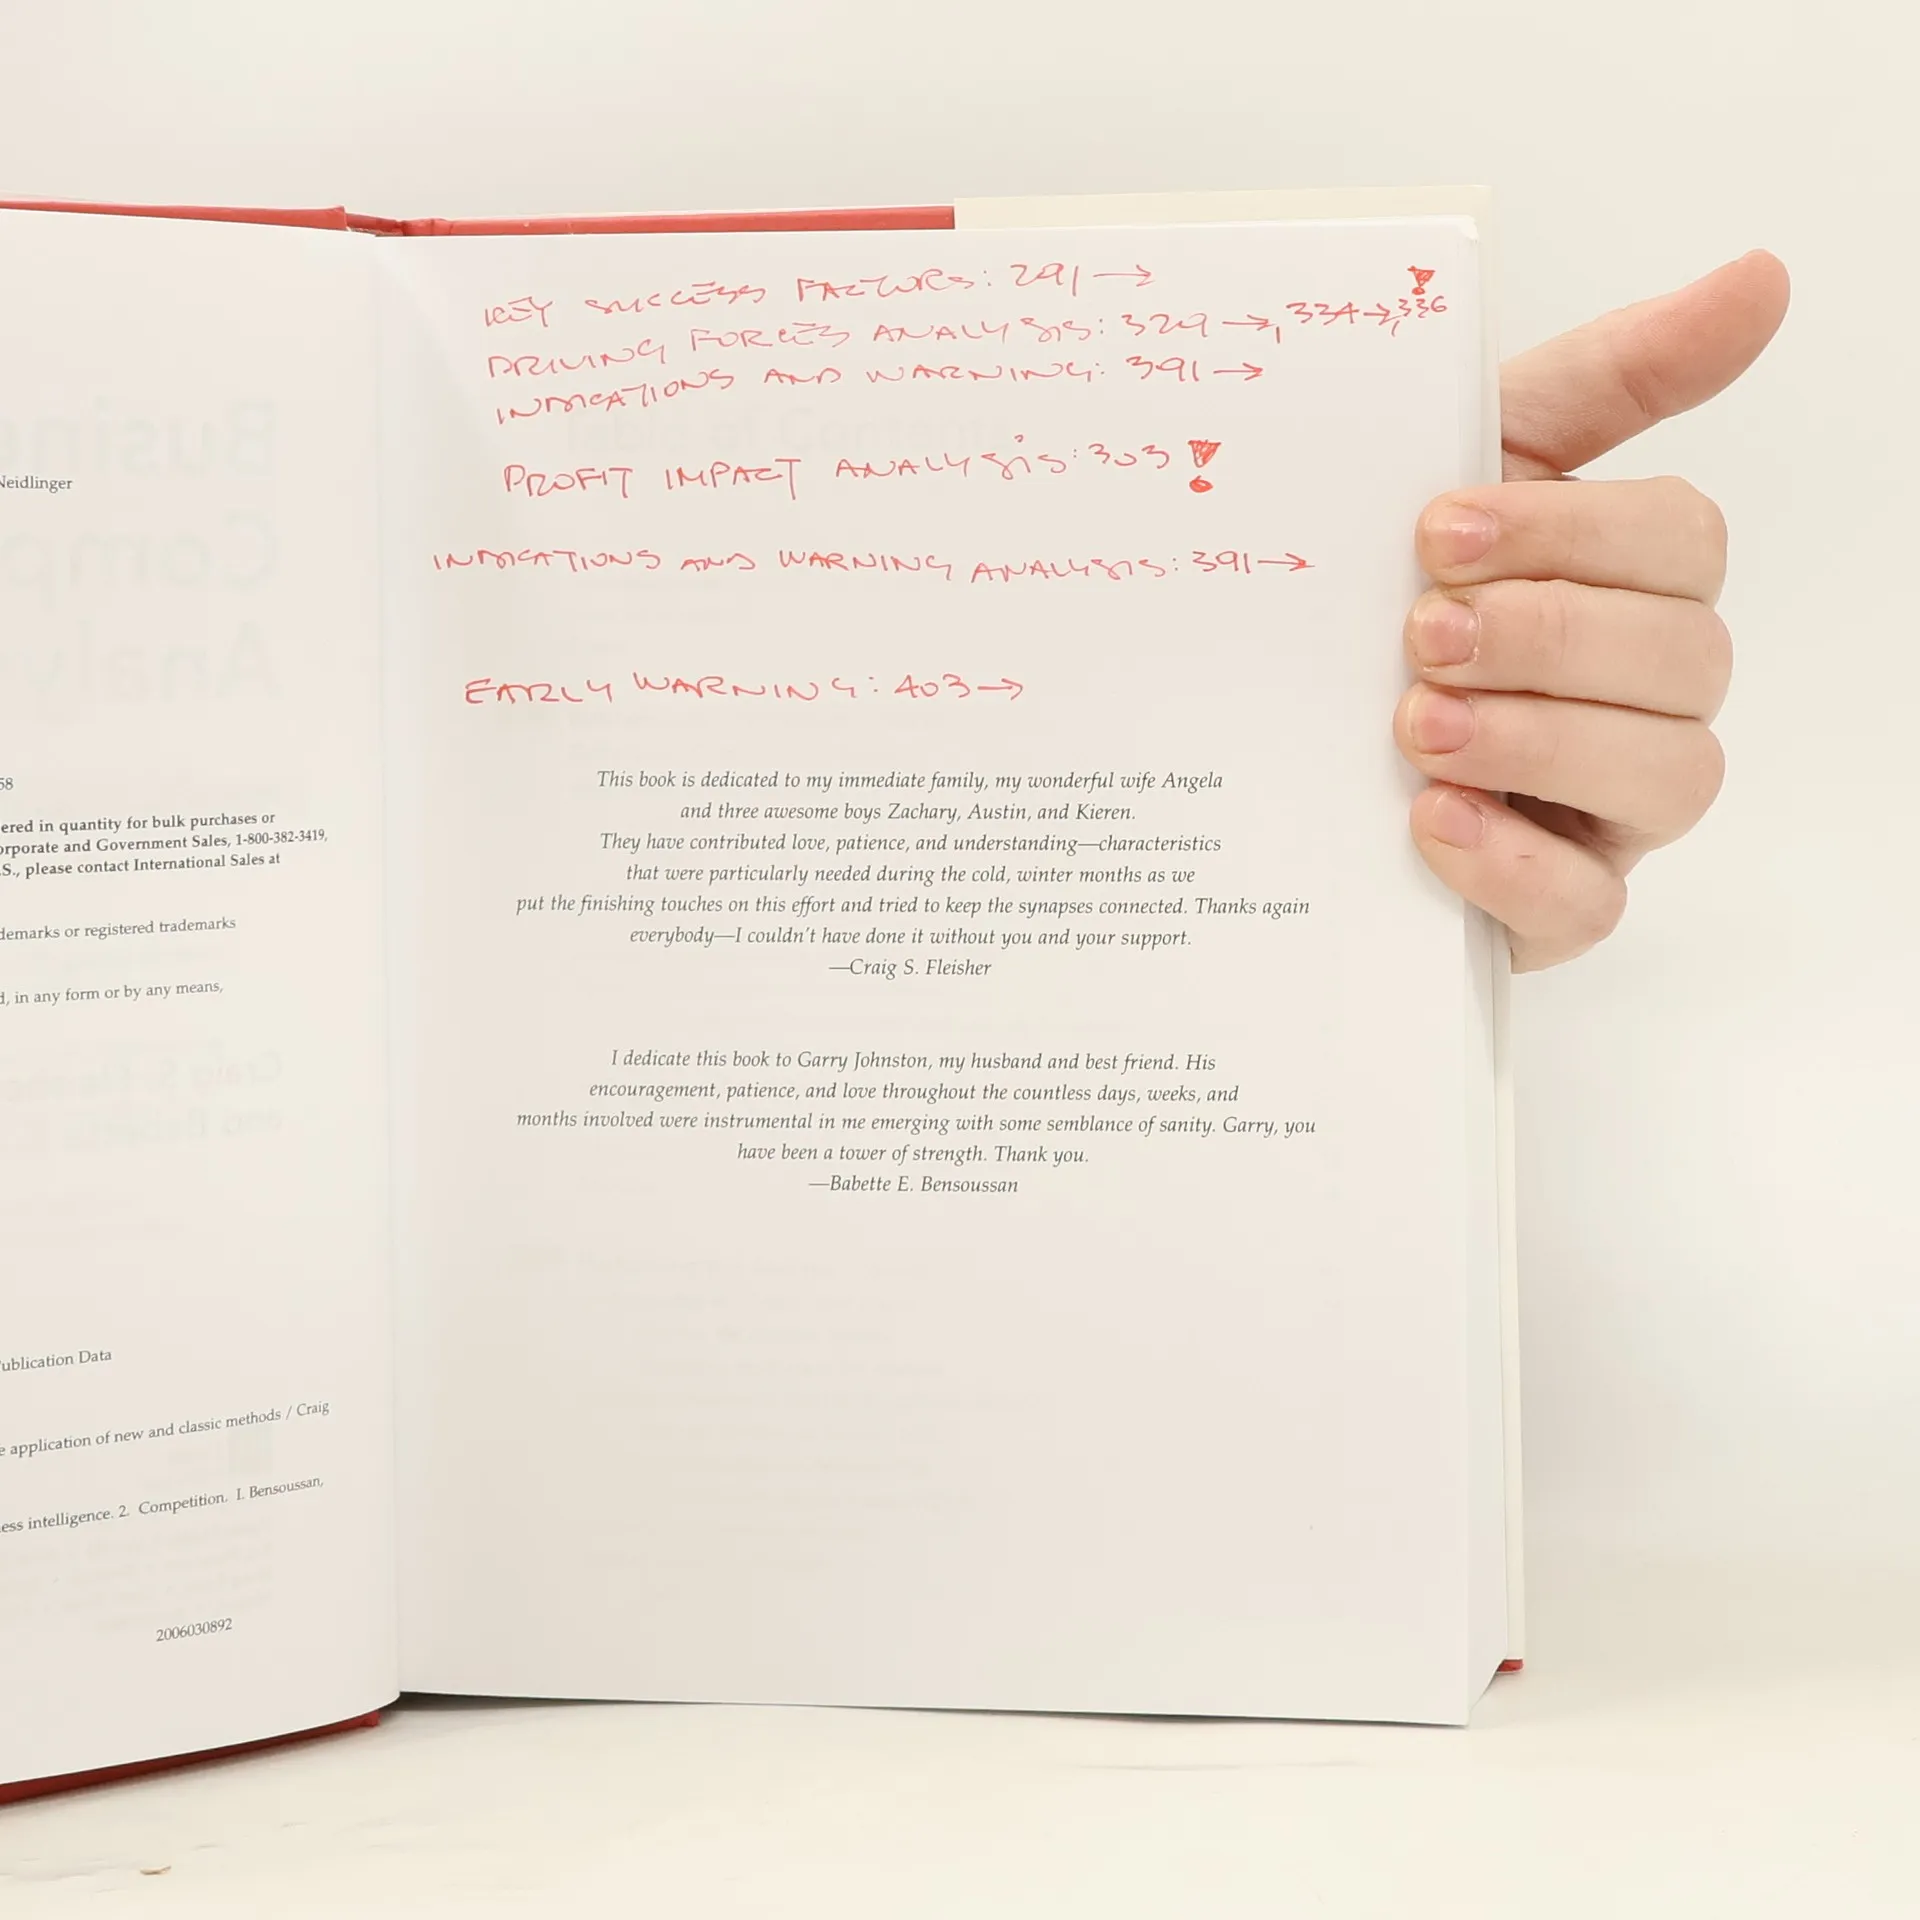 Neidlinger
58
ered in quantity for bulk purchases or
orporate and Government Sales, 1-800-382-3419,
.S., please contact International Sales at
demarks or registered trademarks
d, in any form or by any means,
Publication Data
e application of new and classic methods / Craig
ess intelligence. 2. Competition. I. Bensoussan,
2006030892
KEY SUCCESS FACTORS: 291→
DRIVING FORCES ANALYSIS: 329→, 334→, 336 !
INDICATIONS AND WARNING: 391→
PROFIT IMPACT ANALYSIS: 303 !
INDICATIONS AND WARNING ANALYSIS: 391→
EARLY WARNING: 403→
This book is dedicated to my immediate family, my wonderful wife Angela
and three awesome boys Zachary, Austin, and Kieren.
They have contributed love, patience, and understanding—characteristics
that were particularly needed during the cold, winter months as we
put the finishing touches on this effort and tried to keep the synapses connected. Thanks again
everybody—I couldn't have done it without you and your support.
—Craig S. Fleisher
I dedicate this book to Garry Johnston, my husband and best friend. His
encouragement, patience, and love throughout the countless days, weeks, and
months involved were instrumental in me emerging with some semblance of sanity. Garry, you
have been a tower of strength. Thank you.
—Babette E. Bensoussan